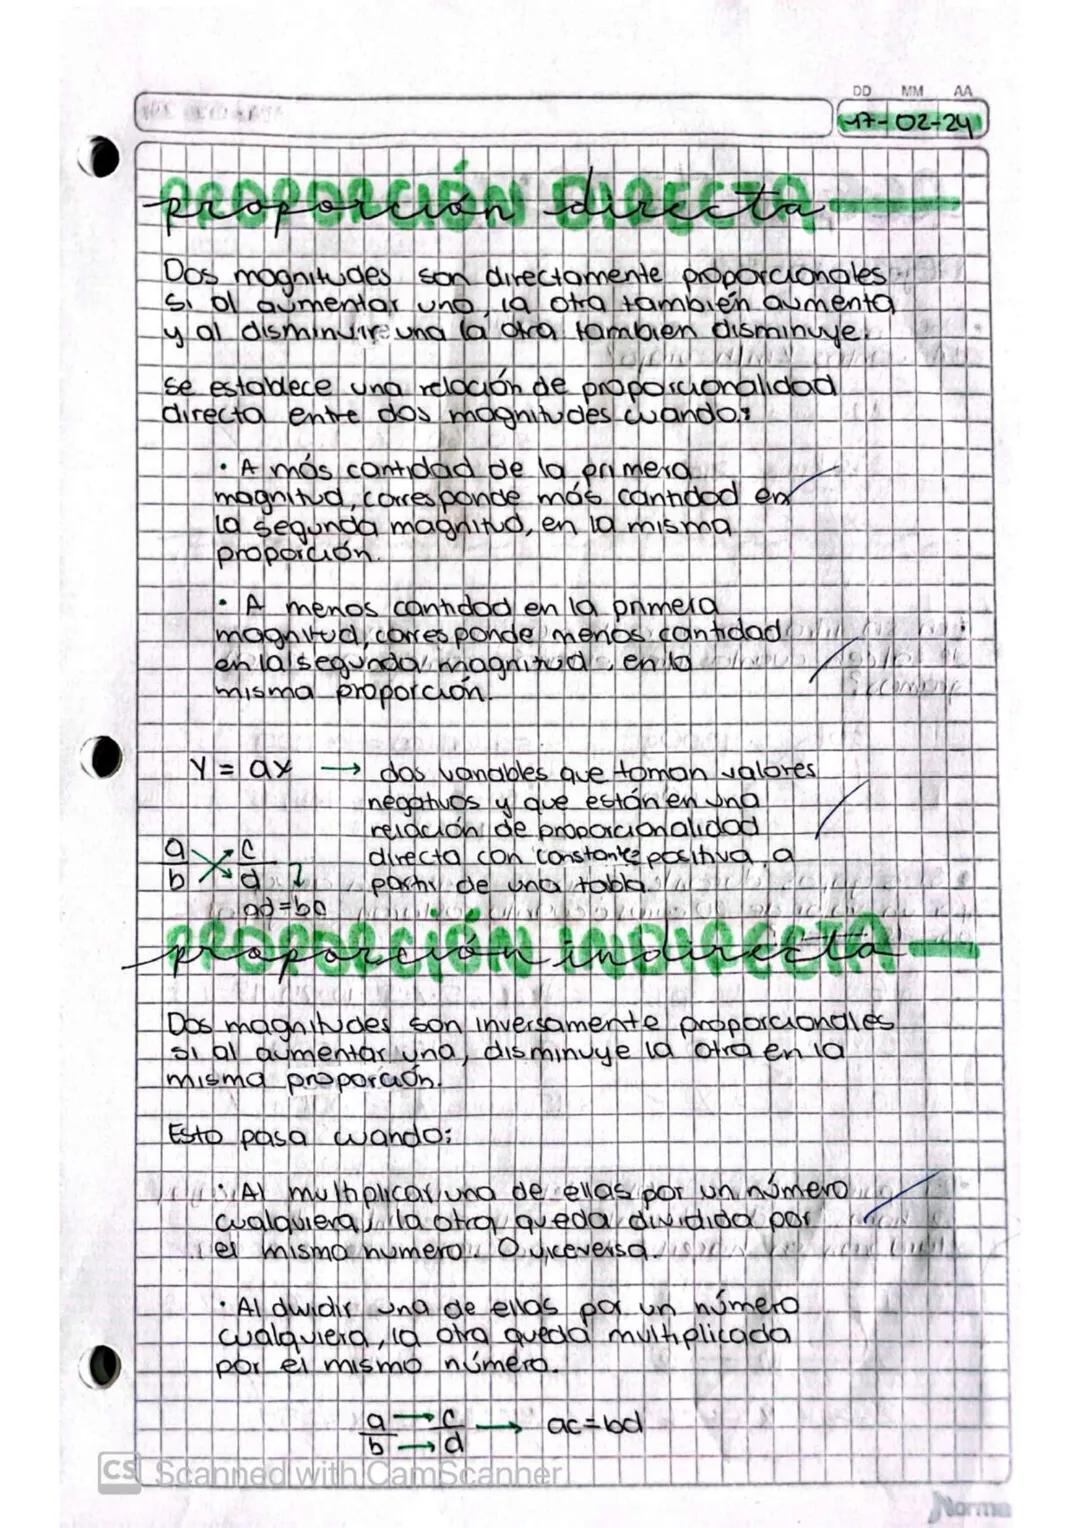 DD MM AA
17-02-24
proporción directa
Dos magnitudes son directamente proporcionales
si al aumentar una, la otra también aumenta
y al disminuir una la otra tambien disminuye.
se establece una relación de proporcionalidad
directa entre dos magnitudes cuando:
• A más cantidad de la primera
magnitud, corresponde más cantidad en
la segunda magnitud, en la misma
proporción.
• A menos cantidad en la primera
magnitud, corresponde menos cantidad
en la segunda magnitud, en la
misma proporción.
Y = ax → dos variables que toman valores
negativos y que están en una
relación de proporcionalidad
directa con constante positiva, a
partir de una tabla.
a c
b d
ad=bc
proporción indirecta
Dos magnitudes son inversamente proporcionales
si al aumentar una, disminuye la otra en la
misma proporción.
Esto pasa cuando:
• Al multiplicar una de ellas por un número
cualquiera, la otra queda dividida por
el mismo numero. O viceversa.
• Al dividir una de ellas por un número
cualquiera, la otra queda multiplicada
por el mismo número.
a → c → ac=bd
b → d
CS Scanned with CamScanner
Norma